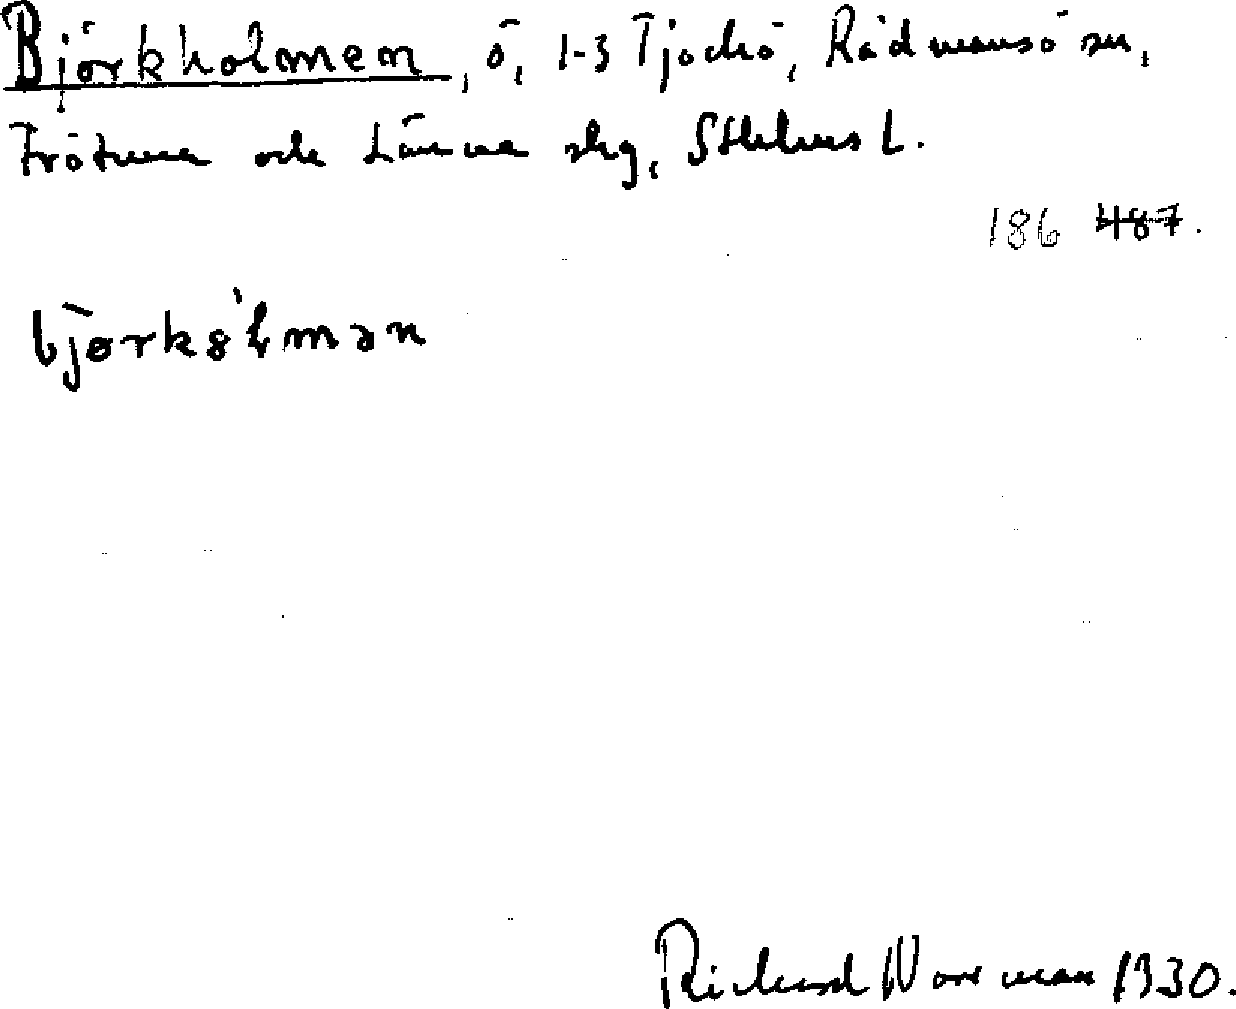 Björkholmen, ö, 1-3 Tjockö, Rådmansö sn,
Frötuna och Länna skg, Sthlms L.
186 487.
bjørkshman
Richard Norrman 1930.